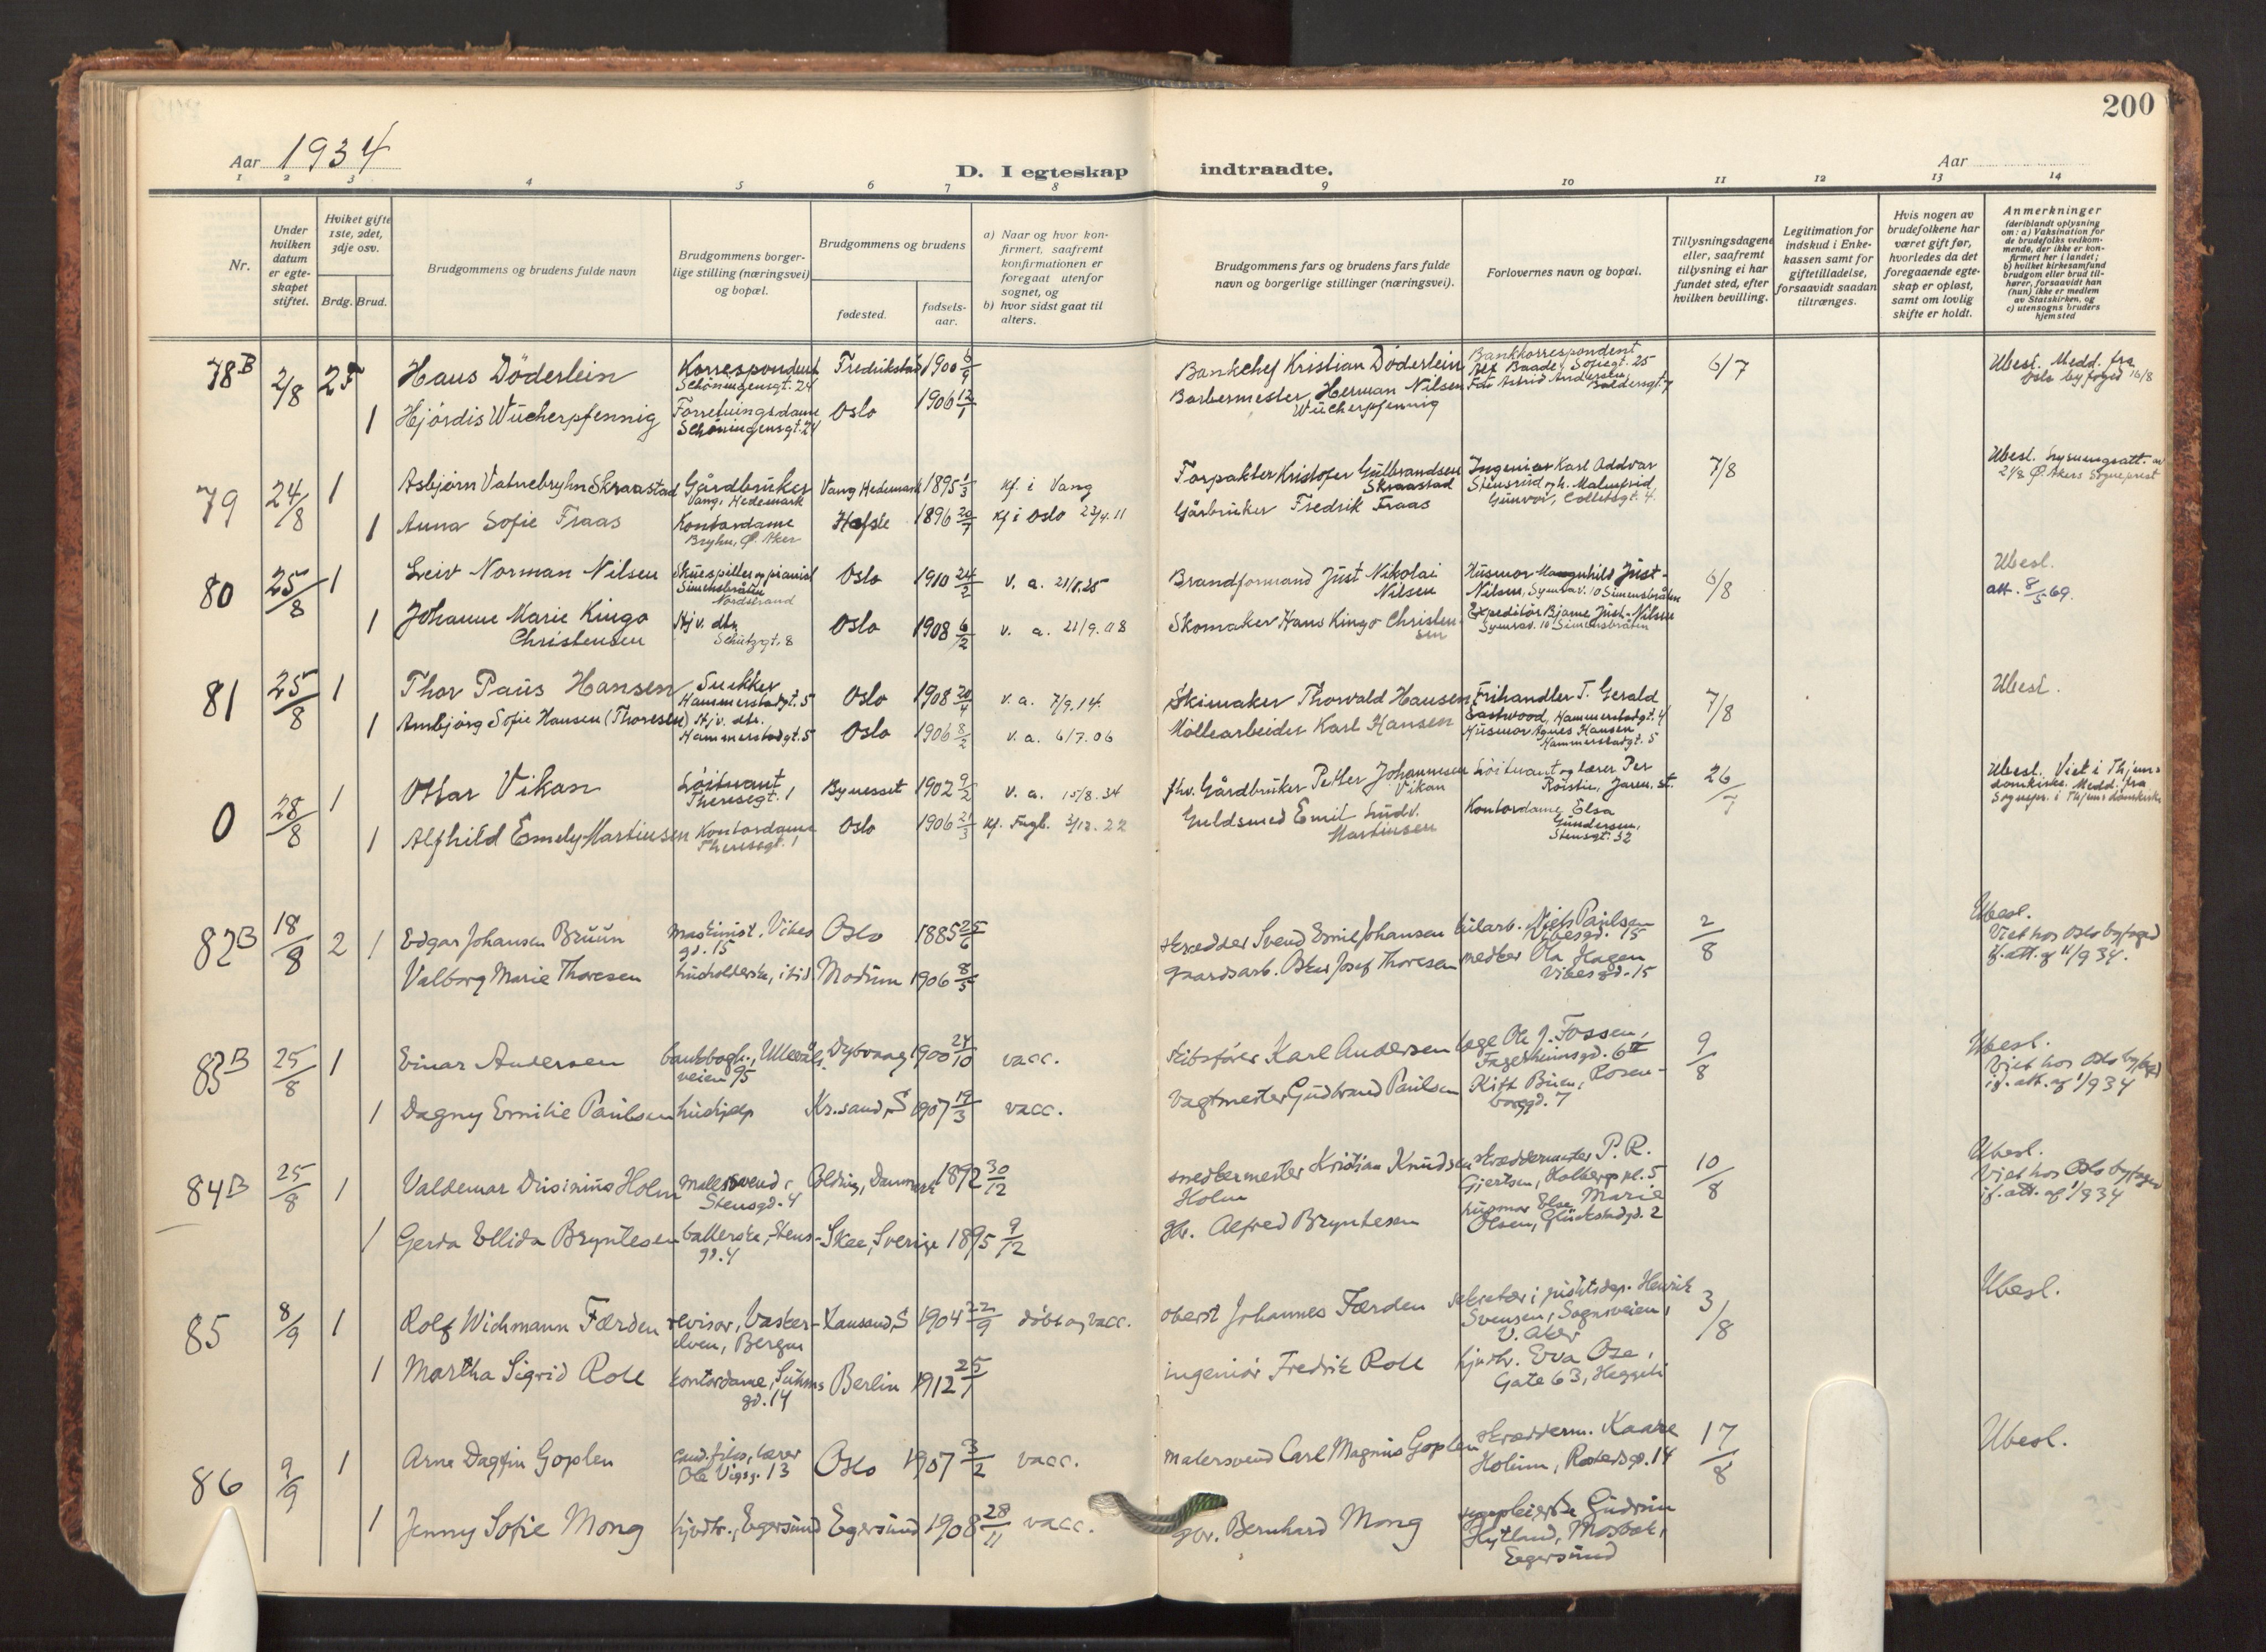 200
Aar 1934
D. I egteskap indtraadte.
Aar
1 2 3 4 5 6 7 8 9 10 11 12 13 14
Nr.
Under hvilken datum er egteskapet stiftet.
Hviket gifte 1ste, 2det, 3dje osv.
Brdg. Brud.
Brudgommens og brudens fulde navn
Brudgommens borgerlige stilling (næringsvei) og bopæl.
Brudgommens og brudens
fødested.
fødselsaar.
a) Naar og hvor konfirmert, saafremt konfirmationen er foregaat utenfor sognet, og
b) hvor sidst gaat til alters.
Brudgommens fars og brudens fars fulde navn og borgerlige stillinger (næringsvei).
Forlovernes navn og bopæl.
Tillysningsdagene eller, saafremt tillysning ei har fundet sted, efter hvilken bevilling.
Legitimation for indskud i Enkekassen samt for giftetilladelse, forsaavidt saadan tiltrænges.
Hvis nogen av brudefolkene har været gift før, hvorledes da det foregaaende egteskap er opløst, samt om lovlig skifte er holdt.
Anmerkninger
(deriblandt oplysning om: a) Vaksination for de brudefolks vedkommende, der ikke er konfirmert her i landet; b) hvilket kirkesamfund brudgom eller brud tilhører, forsaavidt han (hun) ikke er medlem av Statskirken, og c) utensogns bruders hjemsted
78B 2/8 2F Hans Döderlein Korrespondent Schöningensgt. 24 Fredrikstad 1900 Bankchef Kristian Döderlein Bankkorrespondent Baade, Sofiegt. 25 6/7 Ubesl. Medd. fra Oslo byfoged 16/8
1 Hjördis Wücherpfennig Forretningsdame Schöningensgt. 24 Oslo 1906 12/1 Barbermester Herman Nilsen Wücherpfennig Frk. Astrid Andersen, Baldersgt. 7
79 24/8 1 Asbjørn Vatnebryhn Skraastad Gårdbruker Vang, Hedemark Vang Hedemark 1895 1/3 Kf. i Vang Forpakter Kristofer Gulbrandsen Skraastad Ingeniør Karl Oddvar Stensrud og h. Malmfrid Gunvor, Collettsgt. 4. 7/8 Ubesl. Lysningsatt. av 24/8 Ø. Akers Sogneprest
1 Anna Sofie Fraas Kontordame Bryhn, Ø. Aker 1896 20/7 Kf i Oslo 23/4.11 Gårbruker Fredrik Fraas
80 25/8 1 Leiv Norman Nilsen Skuespiller og pianist Simensbråten Nordstrand Oslo 1910 24/3 v. a. 21/8.25 Brandformand Just Nikolai Nilsen Husmor Magnhild Just-Nilsen, Symrav. 10 Simensbråten 6/8 Ubesl. att. 8/5 69.
1 Johanne Marie Kingo Christensen Hjv. dtr. Schultzgt. 8 Oslo 1908 6/2 v. a. 21/9.08 Skomaker Hans Kingo Christensen Expeditör Bjarne Just-Nilsen Symrav. 10 Simensbråten
81 25/8 1 Thor Paus Hansen Snekker Hammerstadgt. 5 Oslo 1908 20/4 v. a. 7/9.14. Skimaker Thorvald Hansen Frihandler T. Gerald Eastwood, Hammerstadgt. 4 7/8 Ubesl.
1 Arnbjørg Sofie Hansen (Thoresen) Hjv. dtr. Hammerstadgt. 5 Oslo 1906 8/2 v. a. 6/7.06 Møllearbeider Karl Hansen Husmor Agnes Hansen Hammerstadgt. 5
0 28/8 1 Ottar Vikan Löitnant Theresegt. 1 Bynesset 1902 9/2 v. a. 15/8.34 fhv. Gårdbruker Petter Johannesen Vikan Löitnant og lærer Per Röistu, Jaren st. 26/7 Ubesl. Viet i Thjems domkirke. Medd. fra Sognepr. i Thjems domkirke
1 Alfhild Emely Martinsen Kontordame Theresegt. 1 Oslo 1906 21/3 Kf. Fagb. 3/12.22 Guldsmed Emil Ludv. Martinsen Kontordame Elsa Gundersen, Stensgt. 32
82B 18/8 2 1 Edgar Johansen Bruun maskinist, Vibes gd. 15 Oslo 1885 25/6 skredder Svend Emil Johansen bilarb. Niels Paulsen Vibesgd. 15 2/8 Ubesl. Viet hos Oslo byfoged if. att. af 11/9 34.
Valborg Marie Thoresen husholderske, ibid Modum 1906 8/5 gaardsarb. Peter Josef Thoresen snekker Ola Hagen Vibesgd. 15
83B 25/8 1 Einar Andersen bankbogh., Ullevålsveien 95 Dybvaag 1900 24/10 vacc. skibsfører Karl Andersen læge Ole J. Fossen, Fagerheimsgd. 6 II 9/8 Ubesl. Viet hos Oslo byfoged if. att. af 1/9 34
1 Dagny Emilie Paulsen hushjelp Kr.sand, S 1907 19/3 vacc. vagtmester Gudbrand Paulsen Kitt Buen, Rosenborggd. 7
84B 25/8 1 Valdemar Dusinius Holm malersvend, Stensgd. 4 Kolding, Danmark 1892 30/12 snedkermester Kristian Knudsen Holm skreddermester P. R. Gjertsen, Kolbergs pl. 5 10/8 Ubesl. Viet hos Oslo byfoged if. att. af 1/9 34
1 Gerda Ellida Bryntesen ballerske, Stensgd. 4 Skee, Sverige 1895 9/12 gbr. Alfred Bryntesen husmor Else Marie Olsen, Glückstadgd. 2
85 8/9 1 Rolf Wichmann Færden revisor, Vaskerelven, Bergen Kausand, S 1904 22/9 døbt og vacc. oberst Johannes Færden sekretær i justitsdep. Henrik Svensen, Sognsveien, V. Aker 3/8 Ubesl.
1 Martha Sigrid Roll kontordame, Suhms gd. 14 Berlin 1912 25/7 ingeniør Fredrik Roll hjvdtr. Eva Ose, Gate 63, Heggeli
86 9/9 1 Arne Dagfin Goplen cand. filos, lærer Ole Vigsg. 13 Oslo 1907 3/2 vacc. malersvend Carl Magnus Goplen skredderm. Kaare Holum, Rodesgd. 14 17/8 Ubesl.
1 Jenny Sofie Mong hjvdtr., Egersund Egersund 1908 28/11 vacc. gbr. Bernhard Mong sygepleierske Gudrun Hytland, Mosbek, Egersund